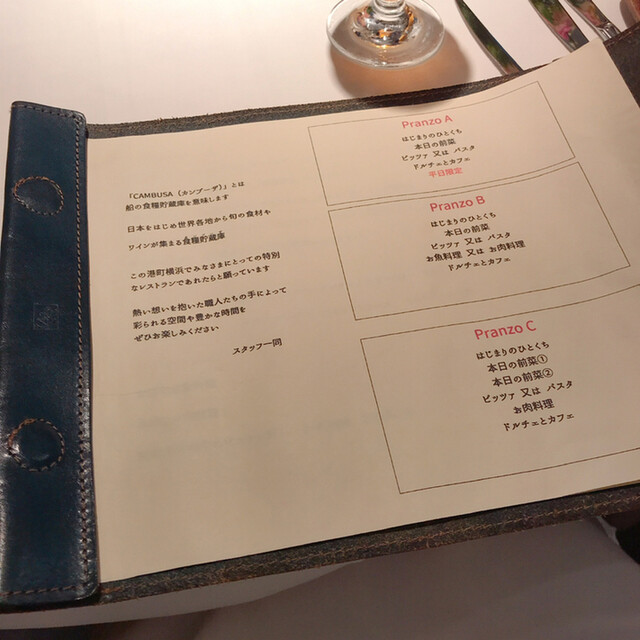 「CAMBUSA（カンブーザ）」とは
船の食糧貯蔵庫を意味します
日本をはじめ世界各地から旬の食材や
ワインが集まる食糧貯蔵庫
この港町横浜でみなさまにとっての特別
なレストランであれたらと願っています
熱い想いを抱いた職人たちの手によって
彩られる空間や豊かな時間を
ぜひお楽しみください
スタッフ一同
Pranzo A
はじまりのひとくち
本日の前菜
ピッツァ 又は パスタ
ドルチェとカフェ
平日限定
Pranzo B
はじまりのひとくち
本日の前菜
ピッツァ 又は パスタ
お魚料理 又は お肉料理
ドルチェとカフェ
Pranzo C
はじまりのひとくち
本日の前菜①
本日の前菜②
ピッツァ 又は パスタ
お肉料理
ドルチェとカフェ